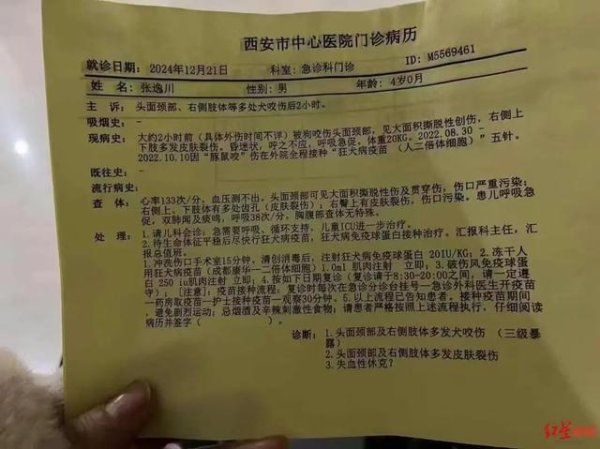 西安市中心医院门诊病历
ID: M5569461
就诊日期: 2024年12月21日 科室: 急诊科门诊
姓 名: 张逸川 性别: 男 年龄: 4岁0月
主 诉: 头面颈部、右侧肢体等多处犬咬伤后2小时。
吸烟史: -
现病史: 大约2小时前(具体外伤时间不详)被狗咬伤头面颈部,见大面积撕脱性创伤,右侧上
下肢多发皮肤裂伤。昏迷状,呼之不应,呼吸急促。体重20KG。2022.08.30 -
2022.10.10因“豚鼠咬”伤在外院全程接种“狂犬病疫苗 (人二倍体细胞)” 五针。
既往史: -
流行病史: -
查 体: 心率133次/分,血压测不出。头面颈部可见大面积撕脱性伤及贯穿伤,伤口严重污染;
右侧上、下肢体有多处齿孔(皮肤裂伤);右臀上有皮肤裂伤,伤口污染。患儿呼吸急
促,双肺闻及痰鸣,呼吸38次/分,胸腹部查体无特殊。
处 理: 1.请儿科会诊;急需要呼吸、循环支持,儿童ICU进一步治疗。
2.待生命体征平稳后尽快行狂犬病疫苗,狂犬病免疫球蛋白接种治疗。汇报科主任,汇
报总值班。
1.冲洗伤口手术室15分钟,清创消毒后,注射狂犬病免疫球蛋白 20IU/KG; 2.冻干人
用狂犬病疫苗(成都康华一二倍体细胞)1.0ml 肌肉注射 立即; 3.破伤风免疫球蛋
白 250 iu肌肉注射 立即; 4.按如下日期复诊(复诊请于8:30-20:00之间,请一定遵
守); [注意]: 疫苗接种流程: 复诊时每次在急诊分诊台挂号一急诊外科医生开疫苗
一药房取疫苗一护士接种疫苗一观察30分钟。6.以上流程已告知患者,接种疫苗期间
,避免剧烈运动;忌烟酒及辛辣刺激性食物;请患者严格按照上述流程执行,仔细阅读
病历并签字(
诊断: 1.头面颈部及右侧肢体多发犬咬伤 (三级暴
露)
2.头面颈部及右侧肢体多发皮肤裂伤
3.失血性休克?
红星